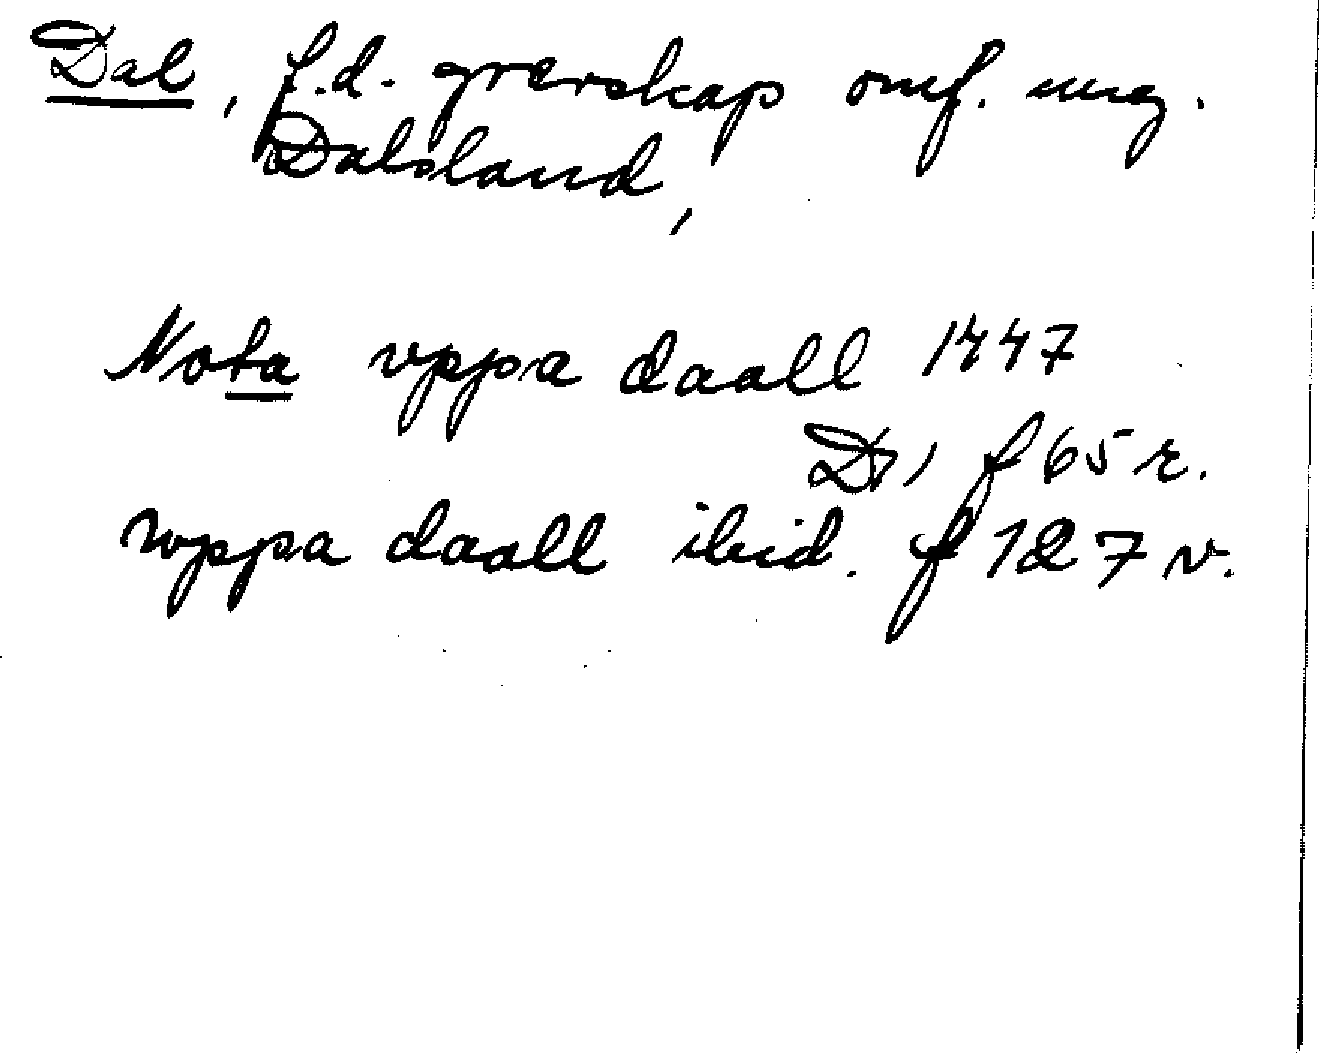 Dal, f.d. grevskap omf. ung.
Dalsland,
Nota vppa daall 1447
D 1 f 65 r.
wppa daall ibid. f 127 v.